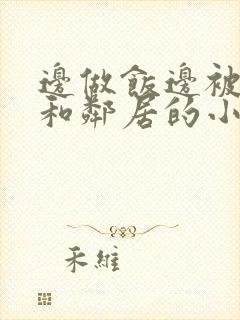 邊做飯邊被
和鄰居的小
禾維